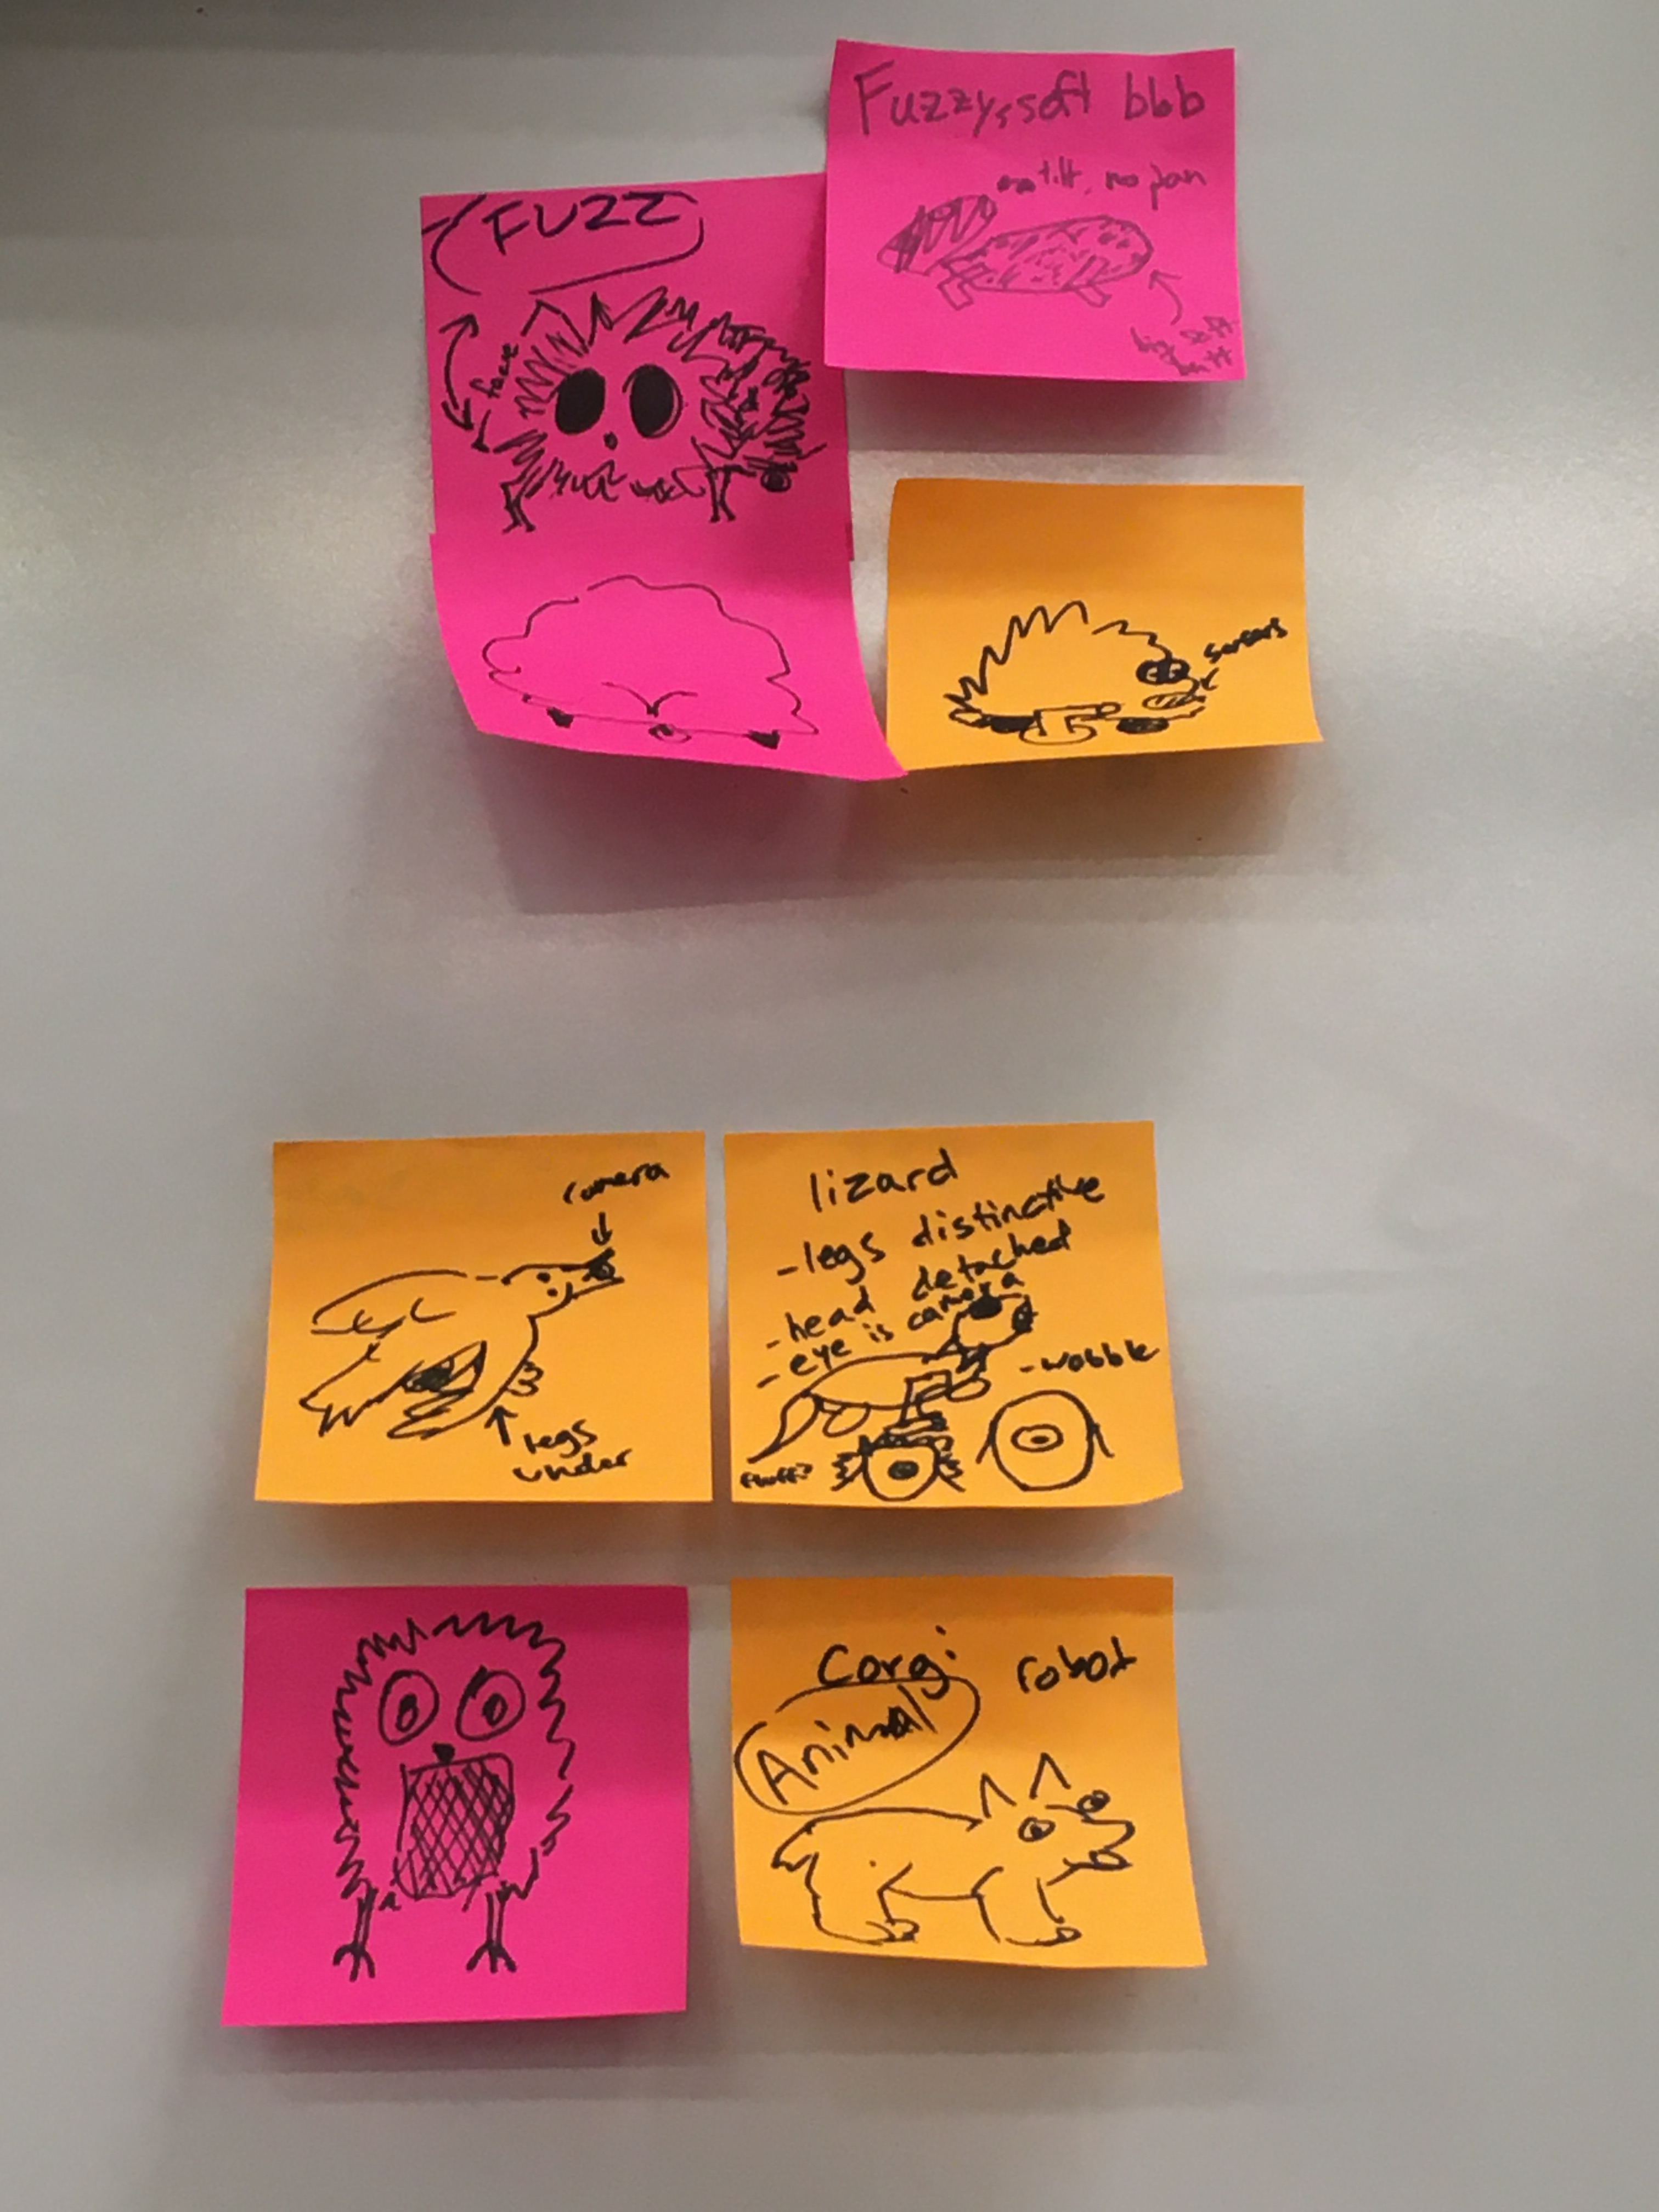 Fuzzy, soft blob
tilt, no pan
FUZZ
face
sensors
camera
legs
under
lizard
-legs distinctive
-head detached
-eye is camera
-wobble
fluff?
Corgi robot
Animal